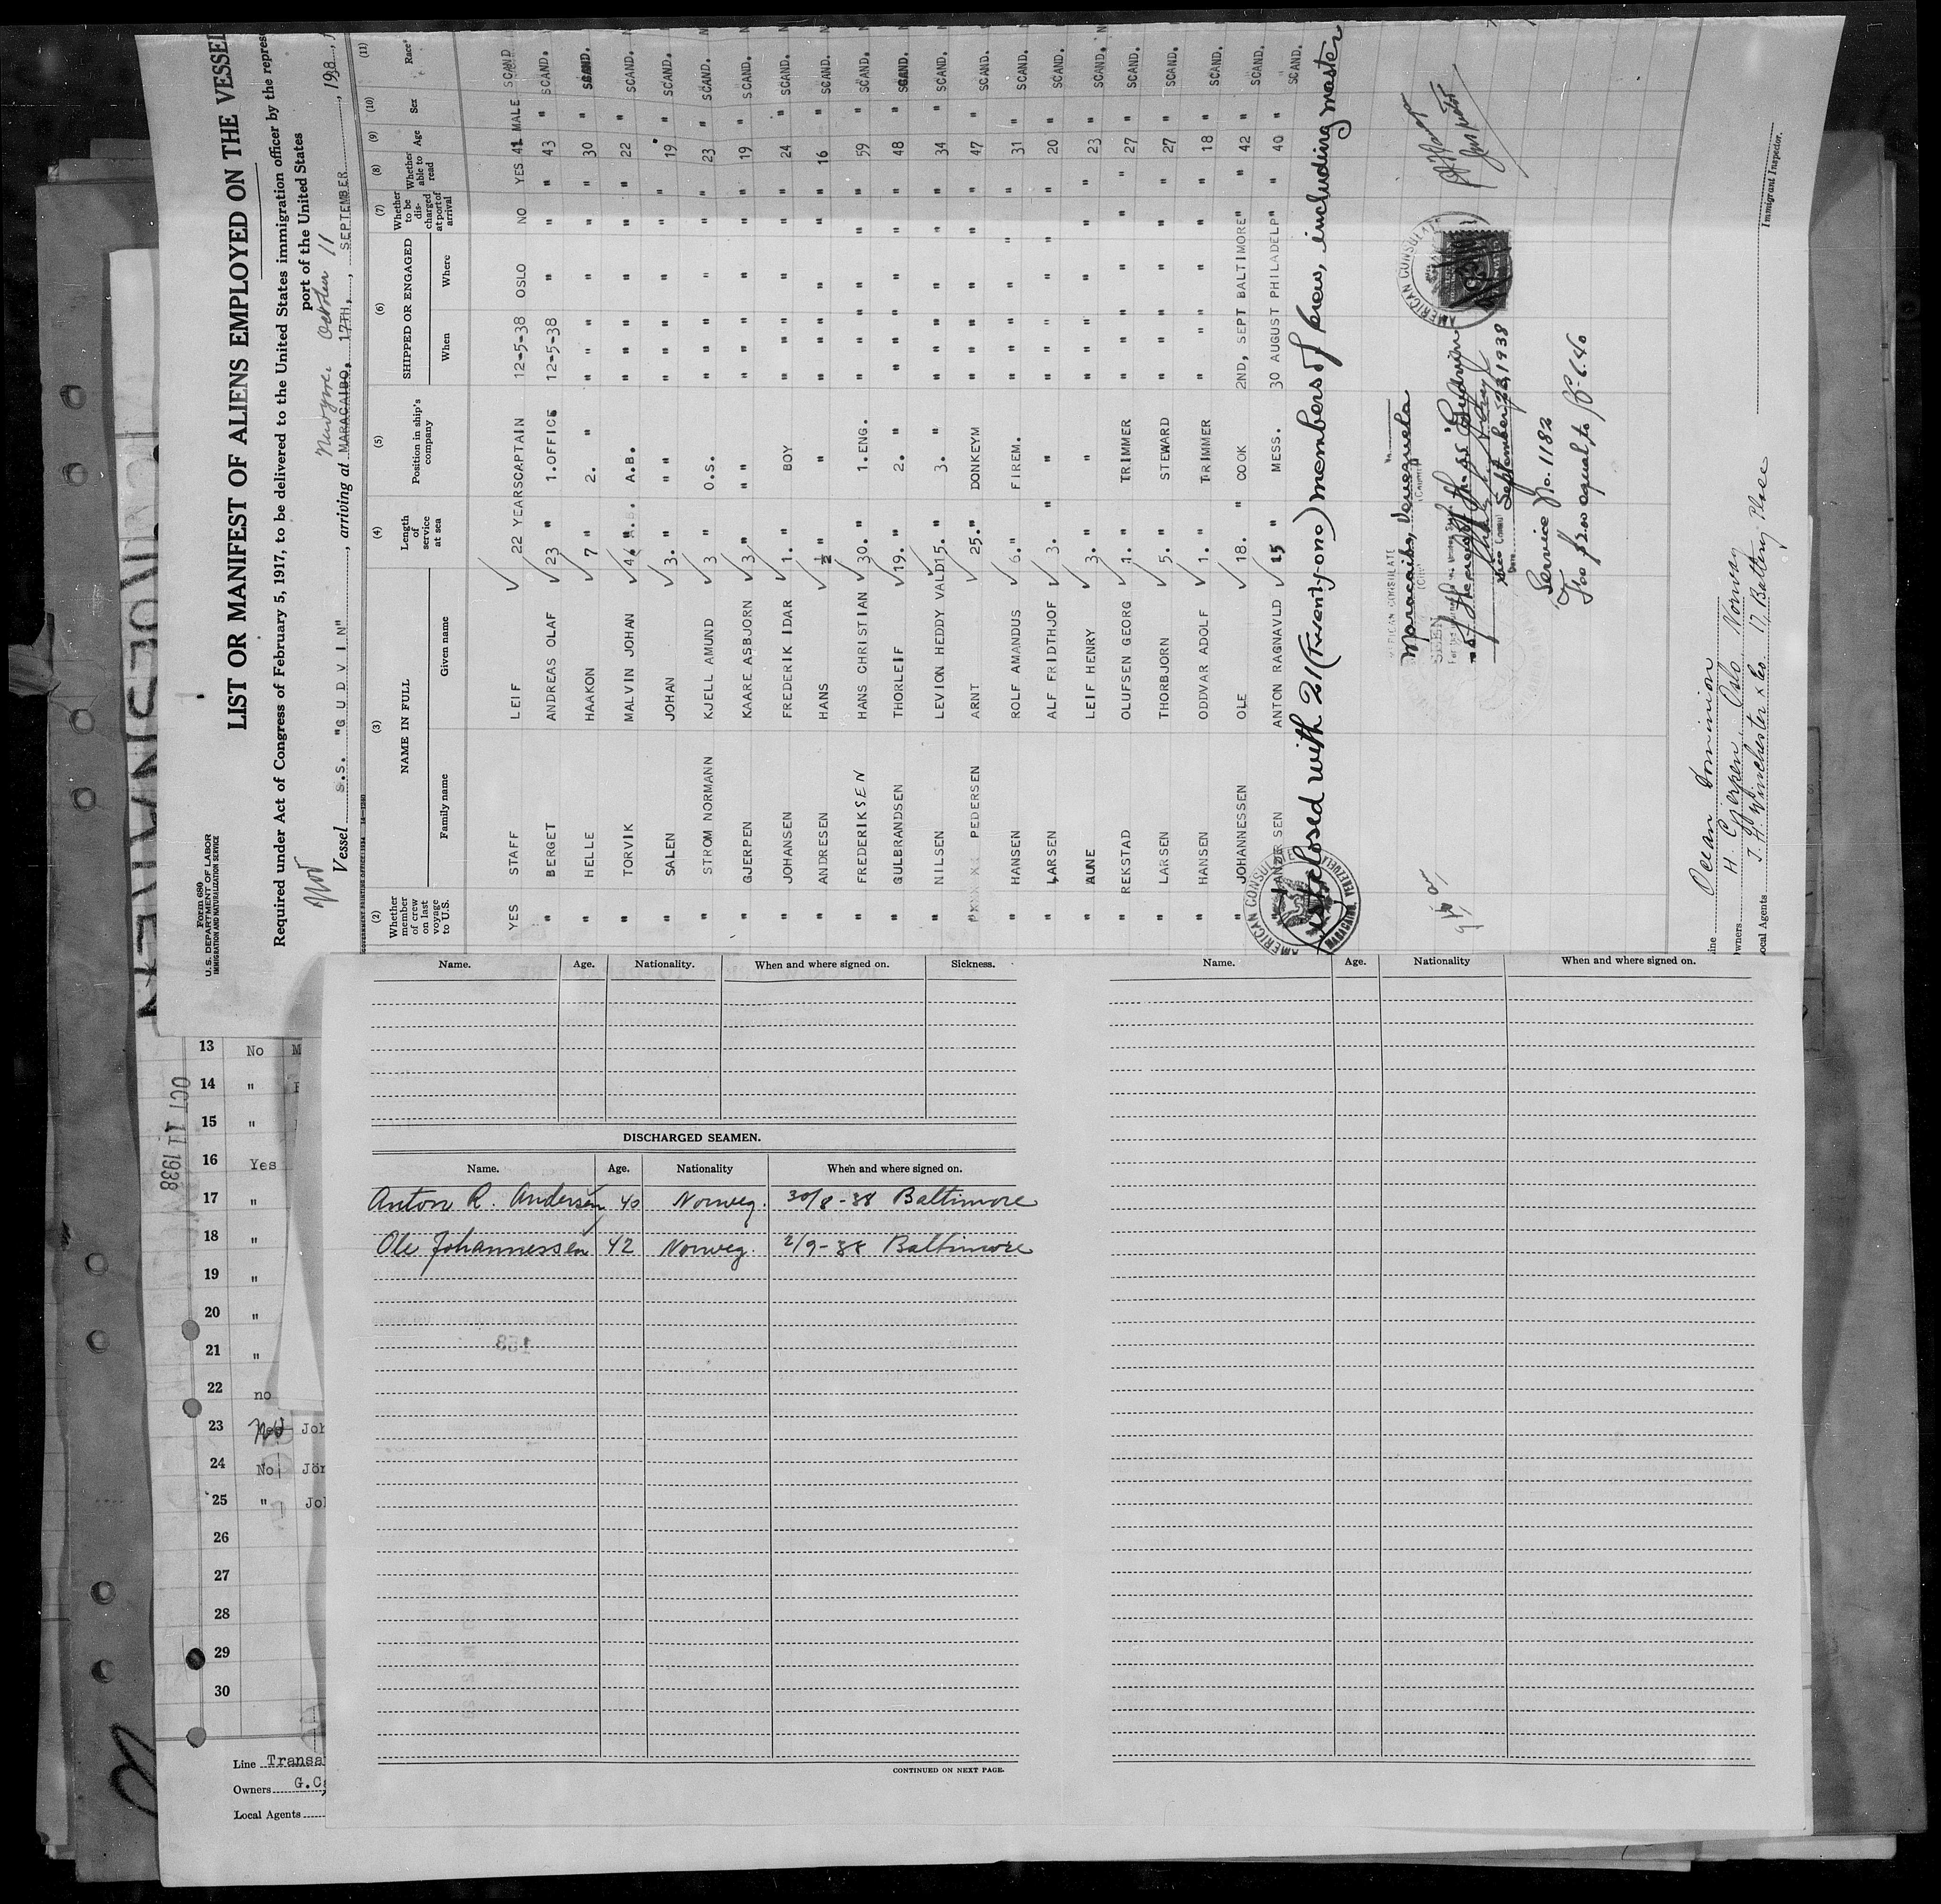 Form 680
U.S. DEPARTMENT OF LABOR
IMMIGRATION AND NATURALIZATION SERVICE
LIST OR MANIFEST OF ALIENS EMPLOYED ON THE VESSEL
Required under Act of Congress of February 5, 1917, to be delivered to the United States immigration officer by the repres
port of the United States
Vessel S.S. "GUDVIN", arriving at MARACAIBO, 17TH, SEPTEMBER, 1938
October 11
(2) (3) (4) (5) (6) (7) (8) (9) (10) (11)
Whether member of crew on last voyage to U.S. NAME IN FULL Family name Given name Length of service at sea Position in ship's company SHIPPED OR ENGAGED When Where Whether to be discharged at port of arrival Whether able to read Age Sex Race
YES STAFF LEIF 22 YEARS CAPTAIN 12-5-38 OSLO NO YES 41 MALE SCAND
" BERGET ANDREAS OLAF 23 " 1.OFFICE 12-5-38 " " " 43 " SCAND.
" HELLE HAAKON 7 " 2. " " " " " " 30 " SCAND.
" TORVIK MALVIN JOHAN 4 " A.B. " " " " " 22 " SCAND.
" SALEN JOHAN 3. " " " " " " " " 19 " SCAND.
" STROM NORMANN KJELL AMUND 3 " O.S. " " " " " 23 " SCAND.
" GJERPEN KAARE ASBJORN 3 " " " " " " " " 19 " SCAND.
" JOHANSEN FREDERIK IDAR 1. " BOY " " " " " 24 " SCAND.
" ANDRESEN HANS ½ " " " " " " " 16 " SCAND.
" FREDERIKSEN HANS CHRISTIAN 30. " 1.ENG. " " " " " 59 " SCAND.
" GULBRANDSEN THORLEIF 19. " 2. " " " " " " 48 " SCAND.
" NILSEN LEVION HEDDY VALD 15. " 3. " " " " " " 34 " SCAND.
" PEDERSEN ARNT 25. " DONKEYM " " " " " 47 " SCAND.
" HANSEN ROLF AMANDUS 6. " FIREM. " " " " " 31 " SCAND.
" LARSEN ALF FRIDTHJOF 3. " " " " " " " 20 " SCAND.
" AUNE LEIF HENRY 3. " " " " " " " 23 " SCAND.
" REKSTAD OLUFSEN GEORG 1. " TRIMMER " " " " " 27 " SCAND.
" LARSEN THORBJORN 5. " STEWARD " " " " " 27 " SCAND.
" HANSEN ODDVAR ADOLF 1. " TRIMMER " " " " " 18 " SCAND.
" JOHANNESSEN OLE 18. " COOK 2ND, SEPT BALTIMORE " " 42 " SCAND.
" ANDERSEN ANTON RAGNAVLD 15 " MESS. 30 AUGUST PHILADELP " " 40 " SCAND.
closed with 21 (Twenty-one) members of crew, including master
AMERICAN CONSULATE
MARACAIBO, VENEZUELA
AMERICAN CONSULATE
Maracaibo, Venezuela
SEEN
September 23, 1938
Service No. 1182
Fee of $2.00 equal to Bs 6.40
AMERICAN CONSULATE
Immigrant Inspector.
Line Ocean Dominion
Owners H. Gjerpen, Oslo Norway
Local Agents J. H. Winchester & Co 17 Battery Place
Name. Age. Nationality. When and where signed on. Sickness.
DISCHARGED SEAMEN.
Name. Age. Nationality When and where signed on.
Anton R. Andersen 40 Norweg. 30/8-38 Baltimore
Ole Johannessen 42 Norweg. 2/9-38 Baltimore
CONTINUED ON NEXT PAGE.
Name. Age. Nationality When and where signed on.
OCT 11 1938
13 No M
14 "
15 "
16 Yes
17 "
18 "
19 "
20 "
21 "
22 no
23 Joh
24 No Jör
25 " Jol
26
27
28
29
30
Line Transa
Owners G.C
Local Agents